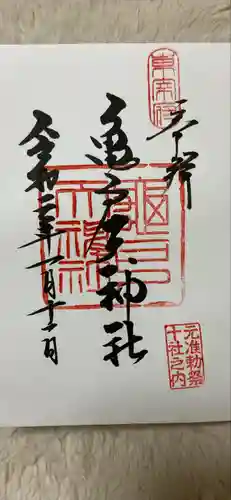 東宰府
奉拝
亀戸天神社
亀戸天神社
令和三年一月十一日
元准勅祭
十社之内